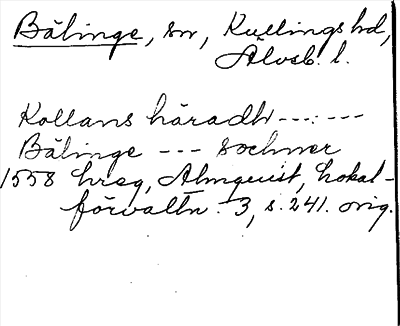 Bälinge, sn, Kullings hd,
Älvsb. l.
Kollans häradh --- : ---
Bälinge --- sochner
1558 hreg, Almquist, Lokal-
förvaltn. 3, s. 241. orig.